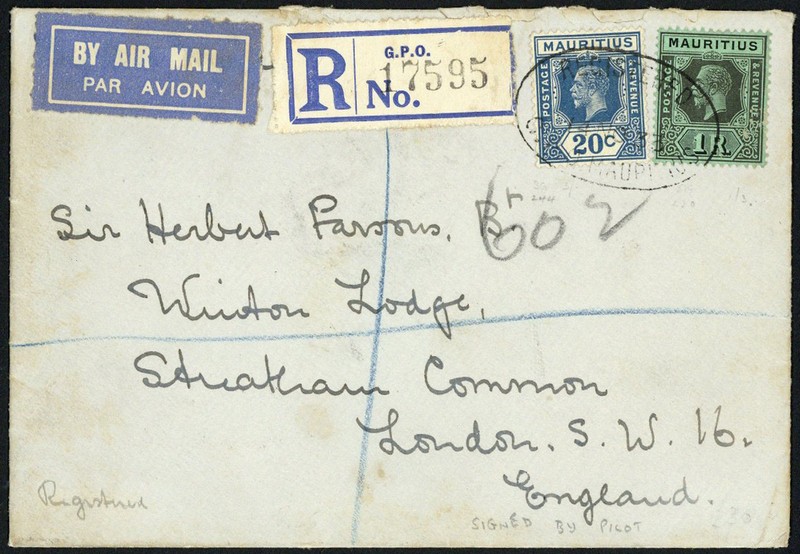 BY AIR MAIL
PAR AVION
R
G.P.O.
No. 17595
MAURITIUS
POSTAGE
& REVENUE
20c
MAURITIUS
POSTAGE
& REVENUE
1R
REGISTERED
Sir Herbert Parsons, Bt
602
Winton Lodge,
Streatham Common
London. S. W. 16.
England.
Registered
SIGNED BY PILOT